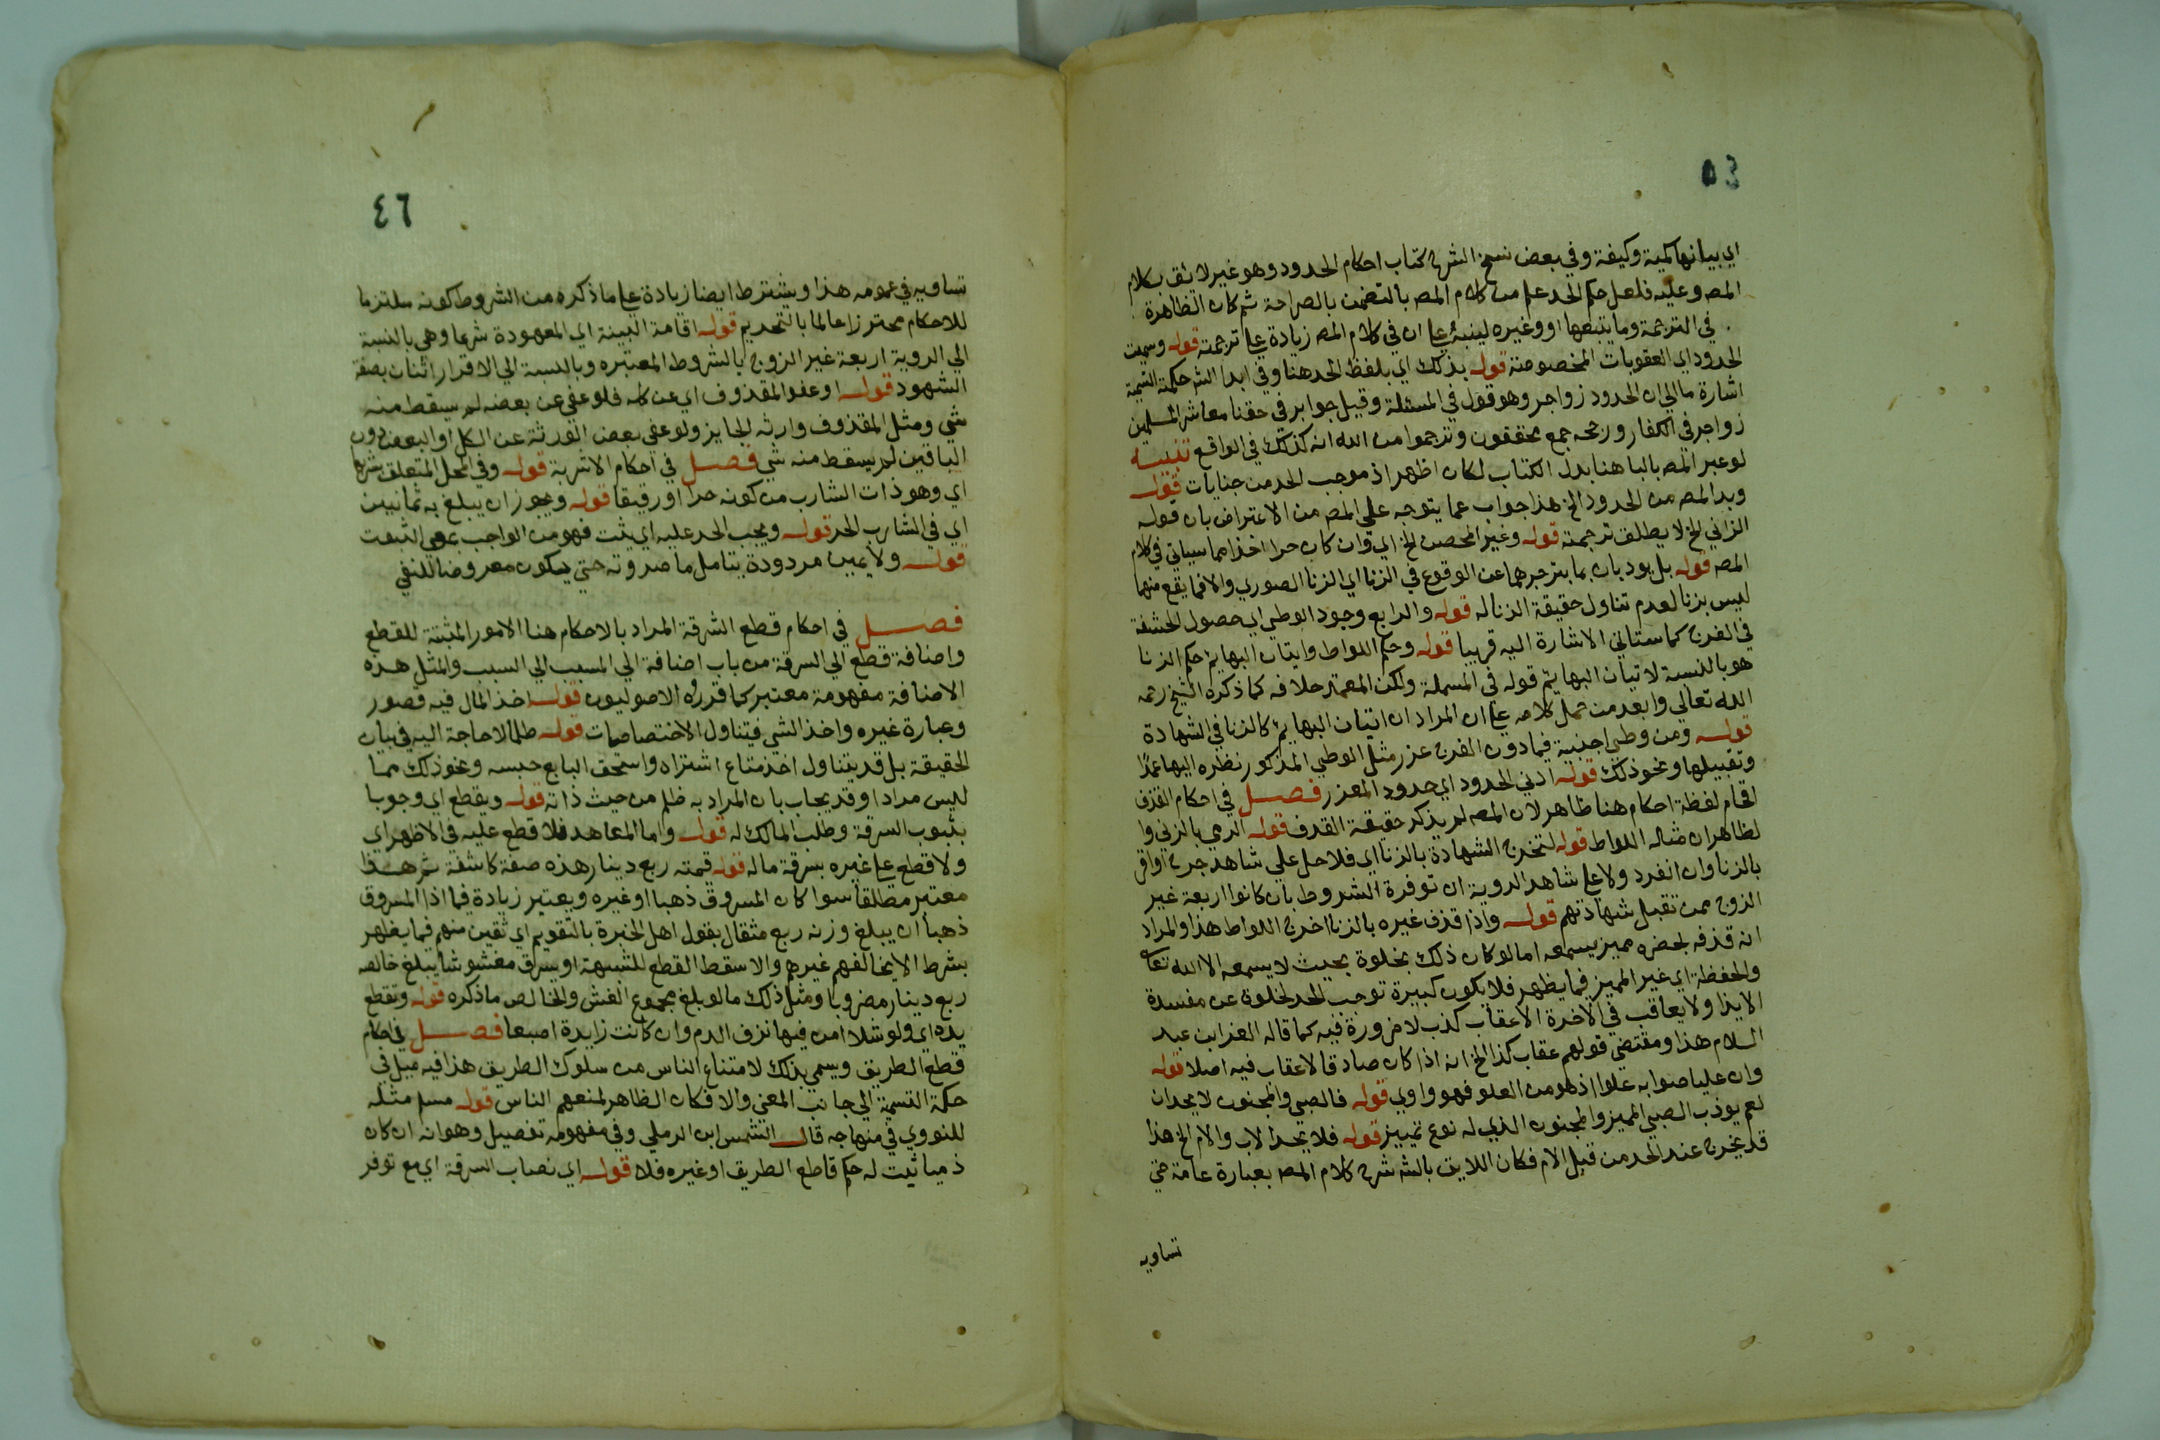 ٤٥
اي بيانها كمية وكيفة وفي بعض نسخ الشرح كتاب احكام الحدود وهو غير لائق بكلام
المص وعليه فلعل حكم الحد علم من كلام المص بالتضمن بالصراحة ثم كان الظاهرة
في الترجمة وما يتبعها او وغيره لينبه علي ان في كلام المص زيادة علي ترجمته قوله وسميت
الحدود اي العقوبات المخصوصة قوله بذلك اي بلفظ الحد هنا وفي ابدا الشر حكمة التسمية
اشارة ما الي ان الحدود زواجر وهو قول في المسئلة وقيل جوابر في حقنا معاشر المسلمين
زواجر في الكفار ورجحه جمع محققون وترجموا من الله انه كذلك في الواقع تنبيه
لو عبر المص بالبا هنا بدل الكتاب لكان اظهر اذ موجب الحد من جنايات قوله
وبدا المص من الحدود الخ هذا جواب عما يتوجه علي المص من الاعتراض بان قوله
الزاني الخ لا يطلق ترجمة قوله وغير المحصن الخ اي وان كان حرا اخذا مما سياتي في كلام
المص قوله بل يودبان بما يزجرهما عن الوقوع في الزنا اي الزنا الصوري والا فما يقع منهما
ليس بزنا لعدم تناول حقيقة الزنا له قوله والرابع وجود الوطي اي حصول الحشفة
في الفرج كما ستاتي الاشارة اليه قريبا قوله وحكم اللواط واتيان البهايم حكم الزنا
هو بالنسبة لاتيان البهايم قوله في المسملة ولكن المعتمد خلافه كما ذكره الشيخ رحمه
الله تعالي وابعد من حمل كلامه علي ان المراد ان اتيان البهايم كالزنا في الشهادة
قوله ومن وطي اجنبية فيما دون الفرج عزر مثل الوطي المذكور نظره اليها عمدا
وتقبيلها ونحو ذلك قوله ادني الحدود اي حدود المعزر فصل في احكام القذف
اقحام لفظة احكام هنا ظاهر لان المص لم يذكر حقيقة القذف قوله الرمي بالزني وا
لظاهر ان مثله اللواط قوله لتخرج الشهادة بالزنا اي فلا حد علي شاهد جرح او اقر
بالزنا وان انفرد ولا علي شاهد الروية ان توفرة الشروط بان كانوا اربعة غير
الزوج ممن تقبل شهادتهم قوله واذا قذف غيره بالزنا اخرج اللواط هذا والمراد
انه قذفه بحضرة مميز يسمعه اما لو كان ذلك بخلوة بحيث لا يسمعه الا الله تعالي
والحفظة اي غير المميز فيما يظهر فلا يكون كبيرة توجب الحد لخلوه عن مفسدة
الايذا ولا يعاقب في الاخرة الا عقاب كذب لا ضرورة فيه كما قاله العز ابن عبد
السلام هذا ومقتضي قولهم عقاب كذا الخ انه اذا كان صادقا لا عقاب فيه اصلا قوله
وان عليا صوابه علوا اذ هو من العلو فهو واوي قوله فالصبي والمجنون لا يحدان
نعم يوذب الصبي المميز والمجنون الذي له نوع تمييز قوله فلا يحد الاب والام الخ هذا
قد يخرج عند الحد من قبل الام فكان اللايق بالش شرح كلام المص بعبارة عامة حتي
تساويه
٤٦
تساويه في عمومه هذا ويشترط ايضا زيادة علي ما ذكره من الشروط كونه ملتزما
للاحكام محترزا عالما بالتحديم قوله اقامة البينة اي المعهودة شرعا وهي بالنسبة
الي الروية اربعة غير الزوج بالشروط المعتبره وبالنسبة الي الاقرار اثنان بصفة
الشهود قوله او عفو المقذوف اي عن كله فلو عفي عن بعضه لم يسقط منه
شي ومثل المقذوف وارثه الحايز ولو عفي بعض الورثة عن الكل او البعض دون
الباقين لم يسقط منه شي فصل في احكام الاشربة قوله وفي المحل المتعلق شرها
اي وهو ذات الشارب من كونه حرا او رقيقا قوله ويجوز ان يبلغ به ثمانيين
اي في الشارب الحد قوله ويجب الحد عليه اي يثبت فهو من الواجب بمعني الثبوت
قوله ولا يمين مردودة يتامل ما صورته حتي يكون معروضا للنفي
فصل في احكام قطع السرقة المراد بالاحكام هنا الامور المثبتة للقطع
واضافة قطع الي السرقة من باب اضافة الي المسبب الي السبب والمثل هذه
الاضافة مفهومة معتبر كما قرره الاصوليون قوله اخذ المال فيه قصور
وعبارة غيره واخذ الشي فيتناول الاختصاصات قوله ظلما لا حاجة اليه في بيان
الحقيقة بل قد يتناول اخذ متاع اشتراه واستحق البايع حبسه ونحو ذلك مما
ليس مرادا وقد يجاب بان المراد به ظلم من حيث ذاته قوله ويقطع اي وجوبا
بثبوب السرقة وطلب المالك له قوله واما المعاهد فلا قطع عليه في الاظهر اي
ولا قطع علي غيره بسرقة ماله قوله قيمته ربع دينار هذه صفة كاشفة ثم هذا
معتبر مطلقا سوا كان المسروق ذهبا او غيره ويعتبر زيادة فيما اذا المسروق
ذهبا ان يبلغ وزنه ربع مثقال بقول اهل الخبرة بالتقويم اي ثقين منهم فيما يظهر
بشرط الا يخالفهم غيرهم والا سقط القطع للشبهة او يسرق مغشوشا يبلغ خالصه
ربع دينار مضروبا ومثل ذلك ما لو بلغ مجموع الغش والخالص ما ذكره قوله وتقطع
يده اي ولو شلا امن فيها نزف الدم وان كانت زايدة اصبعا فصل في احكام
قطع الطريق ويسمي بذلك لامتناع الناس من سلوك الطريق هذا فيه ميل في
حكمة التسمية الي جانب المعني والا فكان الظاهر لمنعهم الناس قوله مسلم مثله
للنووي في منهاجه قال الشمس ابن الرملي وفي مفهومه تفصيل وهو انه ان كان
ذميا ثيت له حكم قاطع الطريق او غيره فلا قوله اي نصاب السرقة اي مع توفر